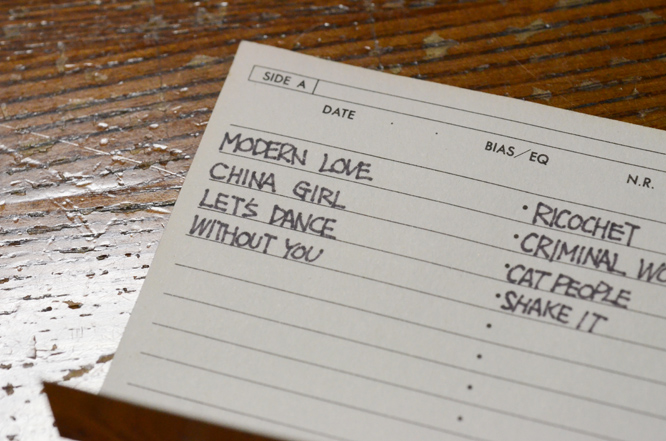 SIDE A
DATE BIAS/EQ N.R.
MODERN LOVE
CHINA GIRL
LET'S DANCE
WITHOUT YOU
• RICOCHET
• CRIMINAL WO
• CAT PEOPLE
• SHAKE IT